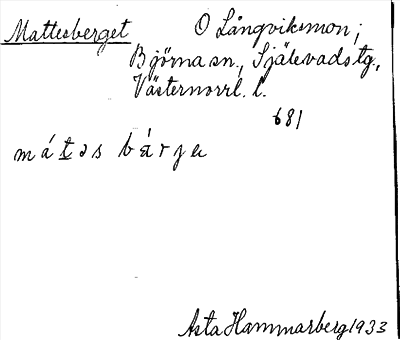 Mattesberget
O Långviksmon;
Björna sn., Själevads tg.,
Västernorrl. l.
681
mátəs bárjə
Asta Hammarberg 1933